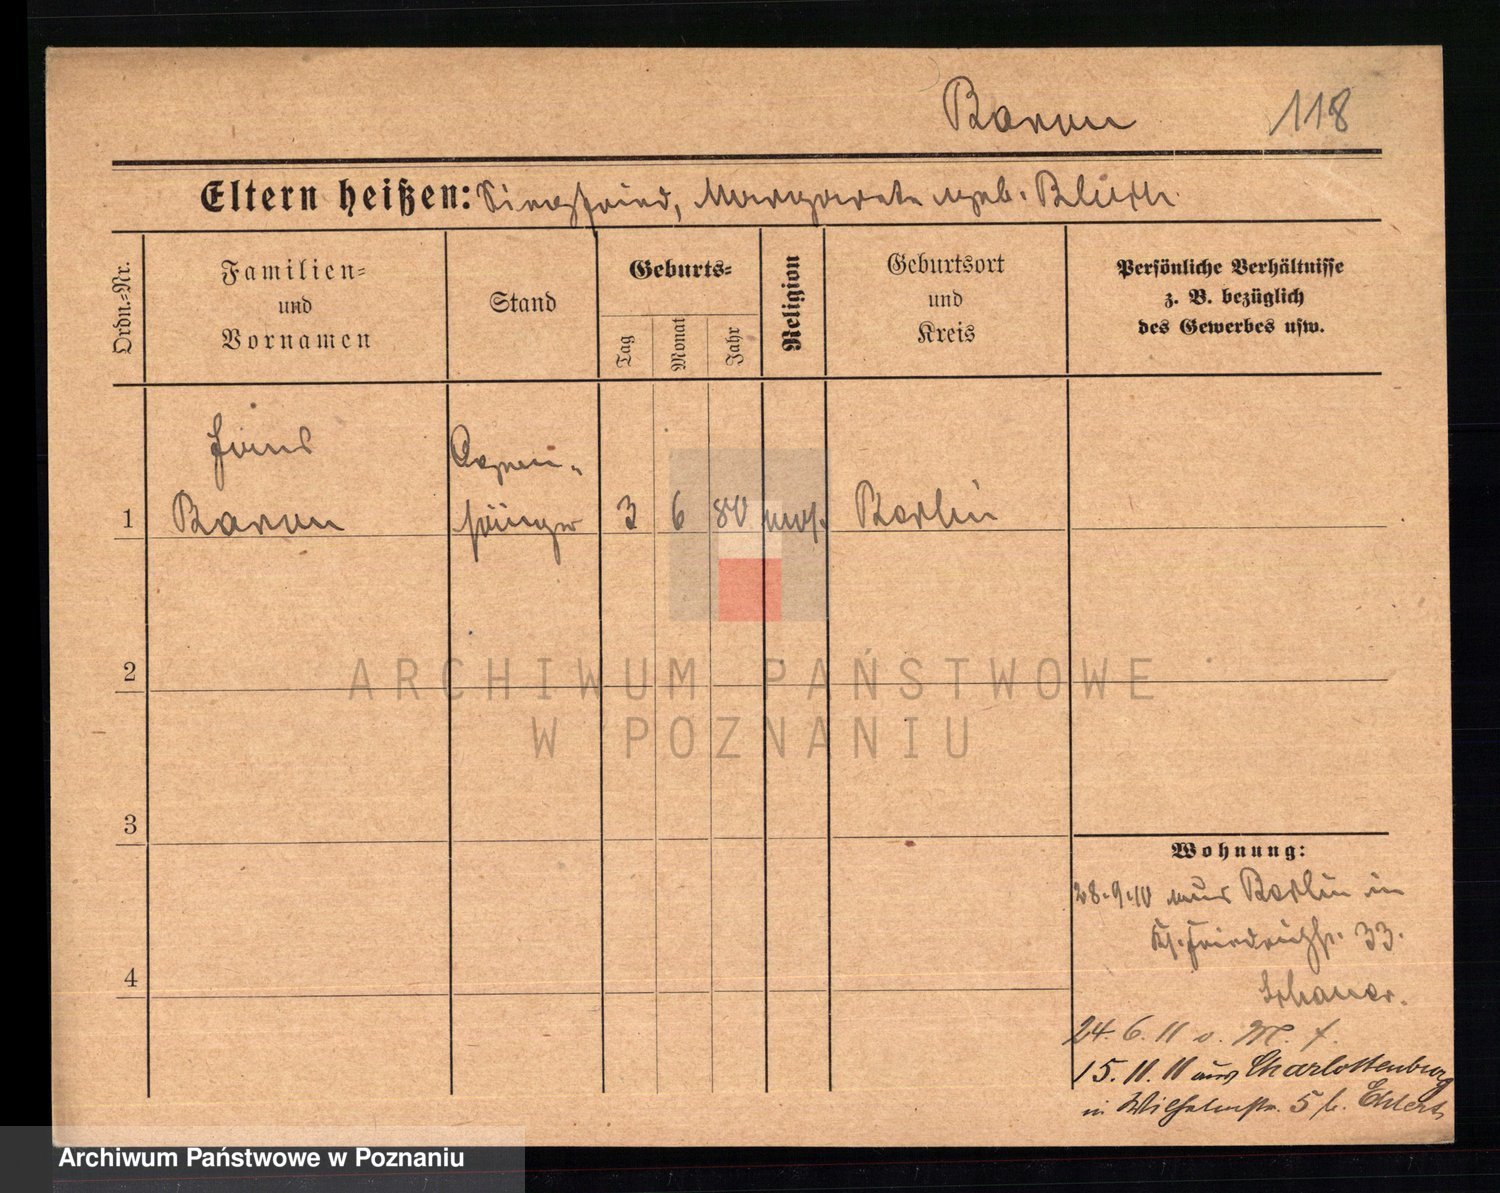 Baron 118
Eltern heißen: Siegfried, Margarete geb. Blüth
Ordn.-Nr.
Familien-
und
Vornamen
Stand
Geburts-
Tag
Monat
Jahr
Religion
Geburtsort
und
Kreis
Persönliche Verhältnisse
z. B. bezüglich
des Gewerbes usw.
Hans Opern-
1 Baron sänger 3 6 80 mos. Berlin
2
ARCHIWUM PAŃSTWOWE
W POZNANIU
3
Wohnung:
28.9.10 aus Berlin in
33.
4
24. 6. 11 v. M. f.
15. 11. 11 aus Charlottenburg
in Wilhelmstr. 5 b. Ehlert
Archiwum Państwowe w Poznaniu